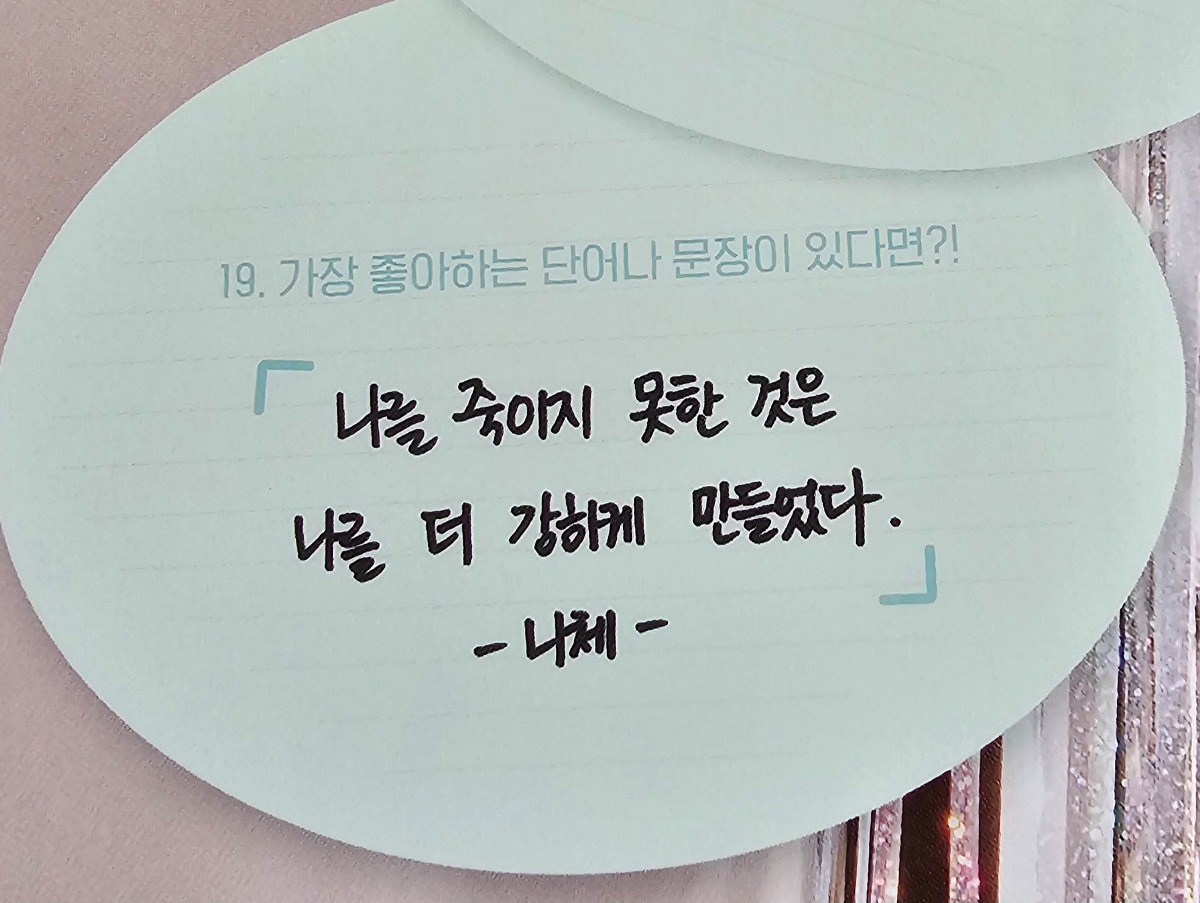 19. 가장 좋아하는 단어나 문장이 있다면?!
「 나를 죽이지 못한 것은
나를 더 강하게 만들었다. 」
- 니체 -